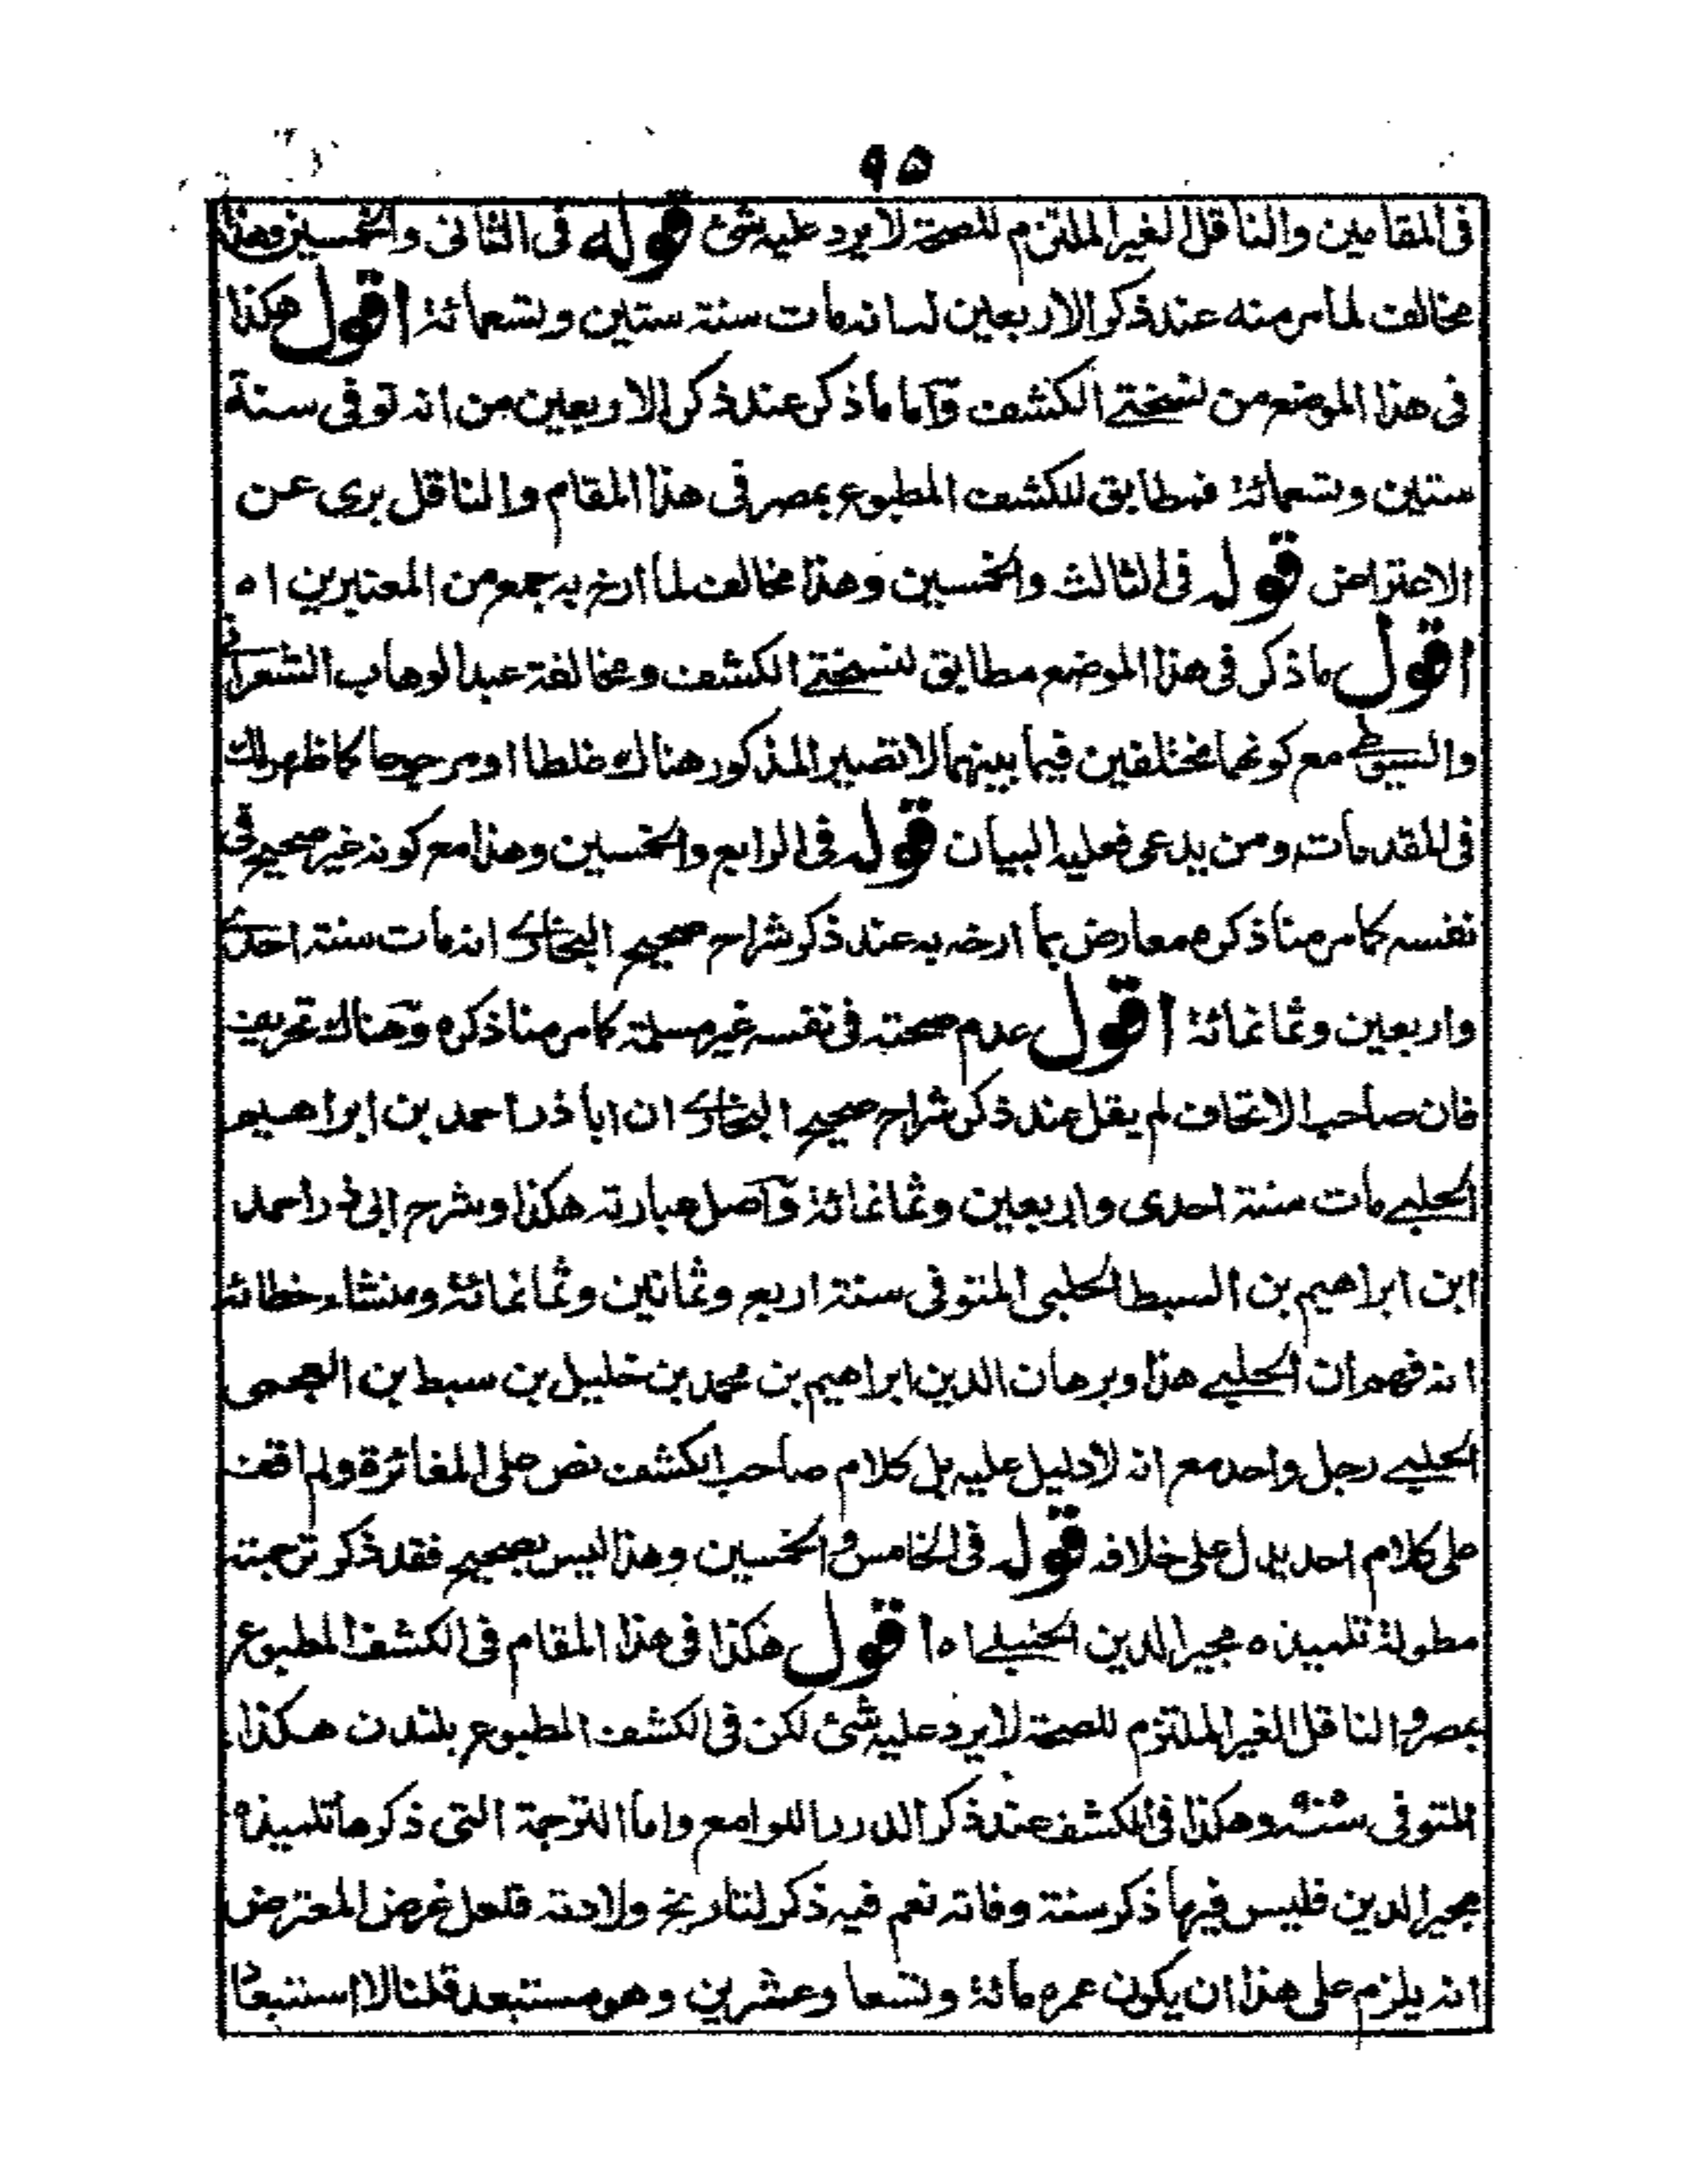 ٩٥
فى المقامين والناقل الغير الملتزم للصحة لا يرد عليه شئ قوله فى الثانى والخمسين وهذا
مخالف لما مر منه عند ذكر الاربعين انه مات سنة ستين وتسعمائة اقول هكذا
فى هذا الموضع من نسختى الكشف وآما ما ذكر عند ذكر الاربعين من انه توفى سنة
ستين وتسعمائة فمطابق للكشف المطبوع بمصر فى هذا المقام والناقل برى عن
الاعتراض قوله فى الثالث والخمسين وهذا مخالف لما ارخ به جمع من المعتبرين اه
اقول ما ذكر فى هذا الموضع مطابق لنسختى الكشف ومخالفة عبد الوهاب الشعرانى
والسيوطى مع كونهما مختلفين فيما بينهما لا تصير المذكور هناك غلطا او مرجوحا كما ظهر لك
فى المقدمات ومن يدعى فعليه البيان قوله فى الرابع والخمسين وهذا مع كونه غير صحيح فى
نفسه كما مر منا ذكره معارض بما ارخه به عند ذكر شراح صحيح البخارى انه مات سنة احدى
واربعين وثمانمائة اقول عدم صحته فى نفسه غير مسلمة كما مر منا ذكره وهناك تحريف
فان صاحب الاتحاف لم يقل عند ذكر شراح صحيح البخارى ان ابا ذر احمد بن ابراهيم
الحلبى مات سنة احدى واربعين وثمانمائة وآصل عبارته هكذا وشرح ابى ذر احمد
ابن ابراهيم بن السبط الحلبى المتوفى سنة اربع وثمانين وثمانمائة ومنشاء خطائه
انه فهم ان الحلبى هذا وبرهان الدين ابراهيم بن محمد بن خليل بن سبط بن العجمى
الحلبى رجل واحد مع انه لا دليل عليه بل كلام صاحب الكشف نص على المغائرة ولم اقف
على كلام احد يدل على خلافه قوله فى الخامس والخمسين وهذا ليس بصحيح فقد ذكر ترجمته
مطولة تلميذه مجير الدين الحنبلى اه اقول هكذا فى هذا المقام فى الكشف المطبوع
بمصر والناقل الغير الملتزم للصحة لا يرد عليه شئ لكن فى الكشف المطبوع بلندن هكذا
المتوفى سنة وهكذا فى الكشف عند ذكر الدرر اللوامع واما الترجمة التى ذكرها تلميذه
مجير الدين فليس فيها ذكر سنة وفاته نعم فيه ذكر لتاريخ ولادته فلعل غرض المعترض
انه يلزم على هذا ان يكون عمره مائة وتسعا وعشرين وهو مستبعد قلنا لا استبعاد